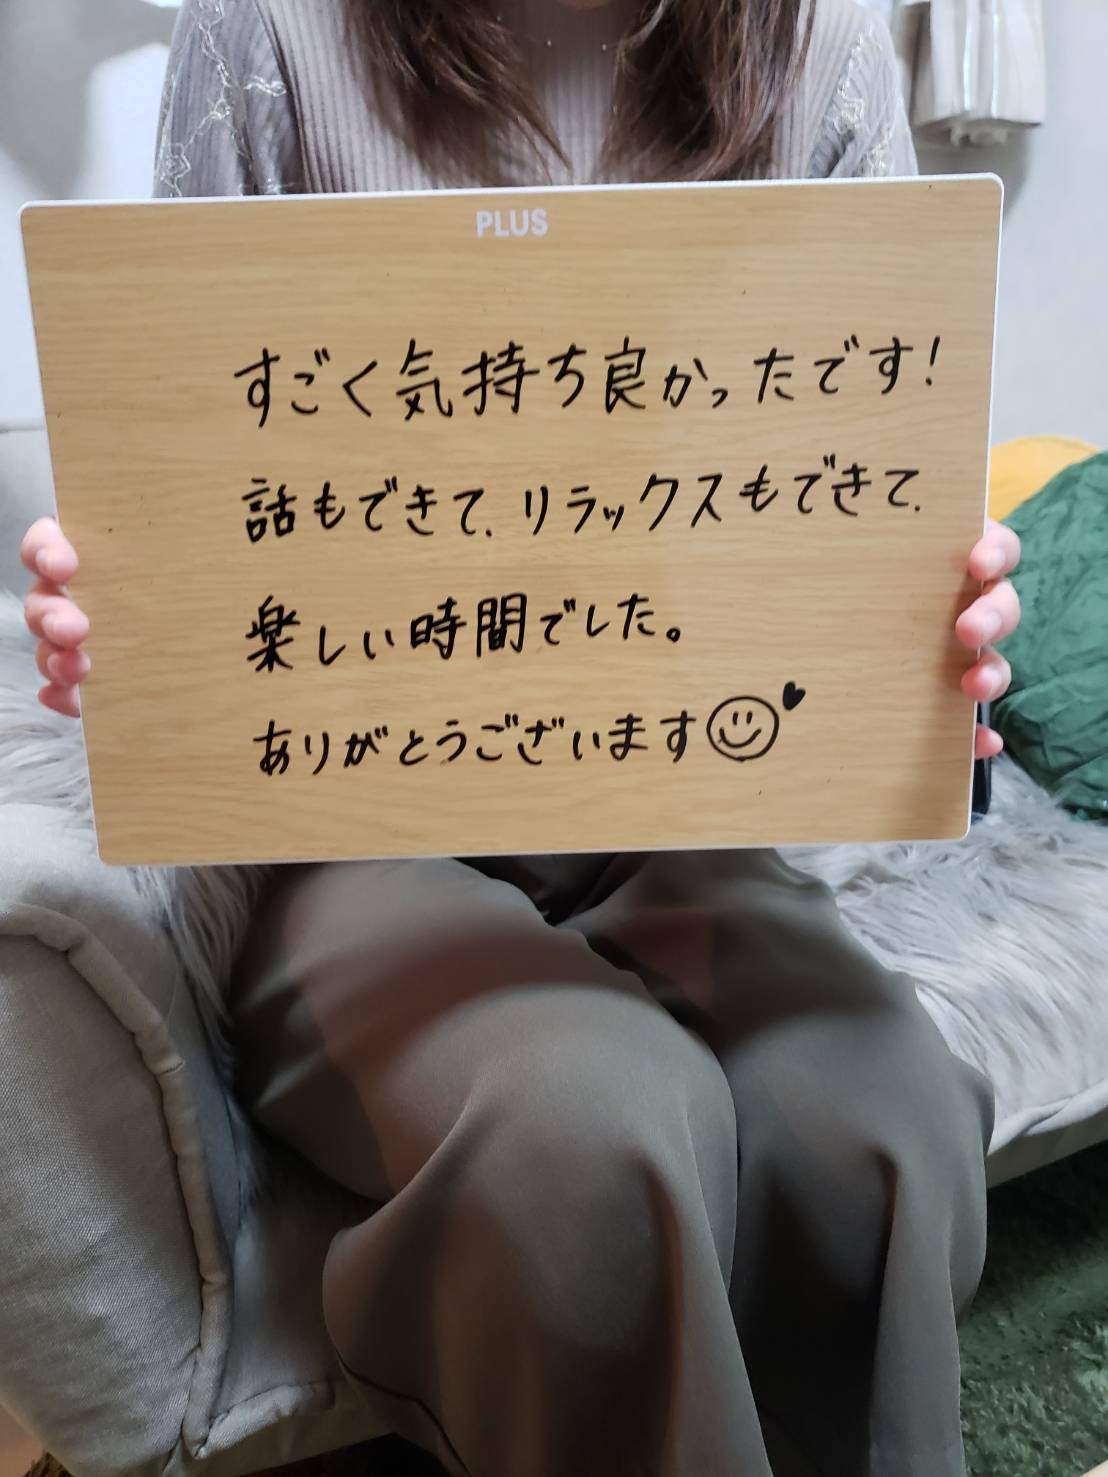 PLUS
すごく気持ち良かったです!
話もできて、リラックスもできて、
楽しい時間でした。
ありがとうございます